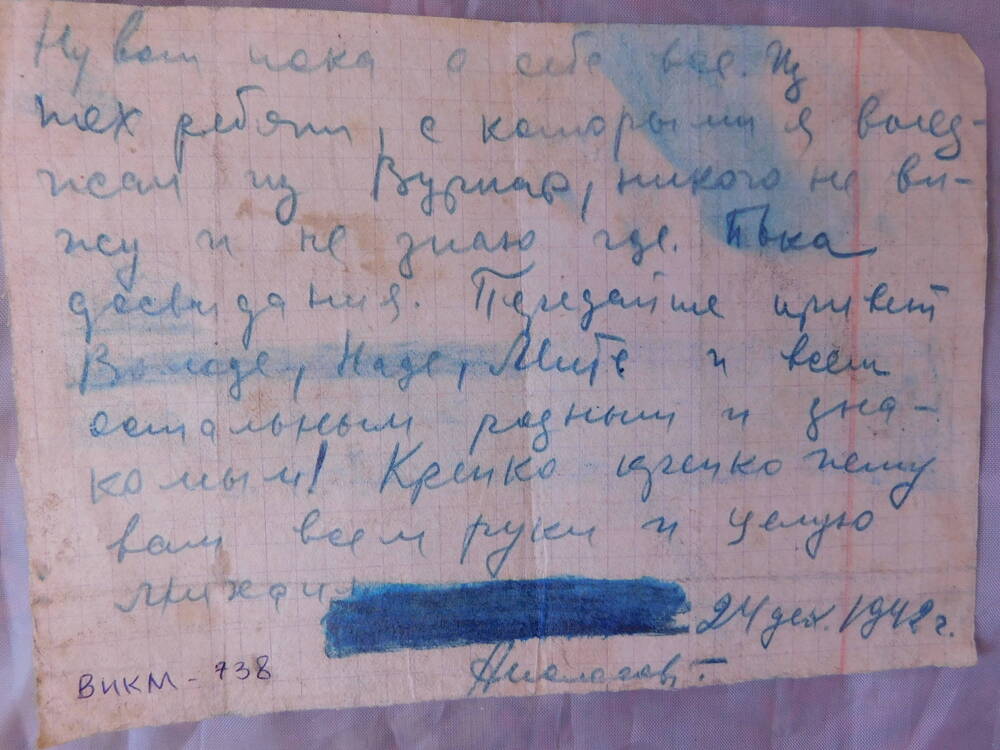 Ну вот пока о себе все. Из
тех ребят, с которыми я выез-
жал из Вурнар, никого не ви-
жу и не знаю где. Пока
досвидания. Передайте привет
Володе, Наде, Мите и всем
остальным родным и зна-
комым! Крепко крепко жму
вам всем руки и целую
Михаил
24 дек. 1942 г.
ВИКМ - 738